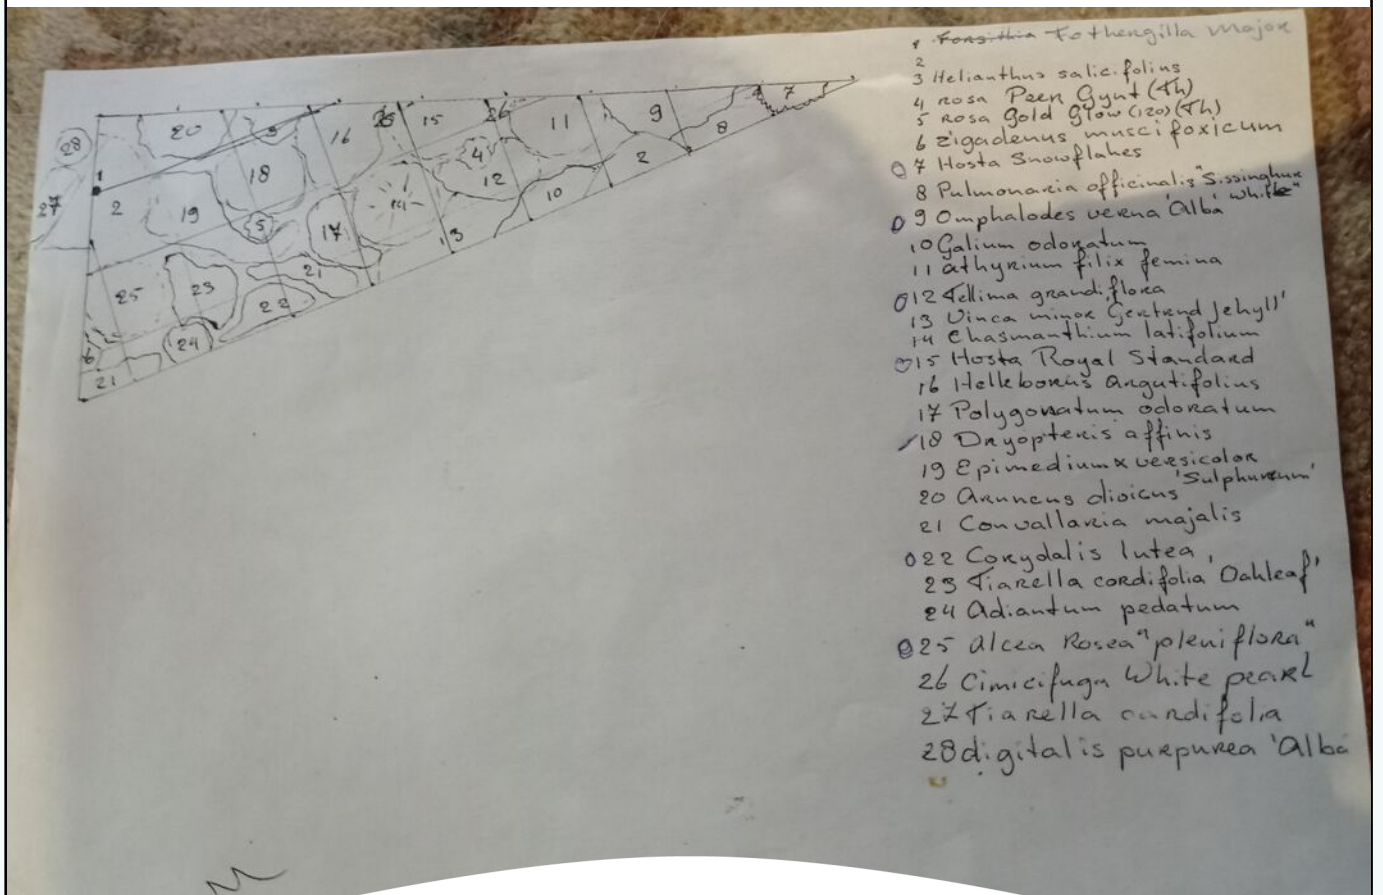 1 Forsithia Fothengilla Major
2
3 Helianthus salicifolius
4 rosa Peer Gynt (Th)
5 Rosa Gold Glow (120) (Th)
6 Zigadenus muscifoxicum
7 Hosta Snowflakes
8 Pulmonaria officinalis "Sissinghur
white"
9 Omphalodes verna 'Alba'
10 Galium odoratum
11 athyrium filix femina
12 Tellima grandiflora
13 Vinca minor Gertrud Jehyll'
14 Chasmanthium latifolium
15 Hosta Royal Standard
16 Helleborus argutifolius
17 Polygonatum odoratum
18 Dryopteris affinis
19 Epimedium x versicolor
'Sulphureum'
20 Aruncus dioicus
21 Convallaria majalis
22 Corydalis lutea
23 Tiarella cordifolia 'Oahleaf'
24 Adiantum pedatum
25 Alcea Rosea "pleniflora"
26 Cimicifuga White pearl
27 Tiarella cardifolia
28 digitalis purpurea 'Alba
28 20 3 16 26 15 26 11 9 8 7
27 1 2 19 18 5 17 14 4 12 10 2
25 23 21 22 13
6 24
21